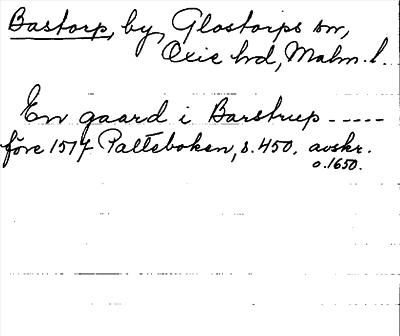 Bastorp, by, Glostorps sn,
Oxie hd, Malm. l.
En gaard i Barstrup -----
före 1517 Palteboken, s. 450. avskr.
o. 1650.